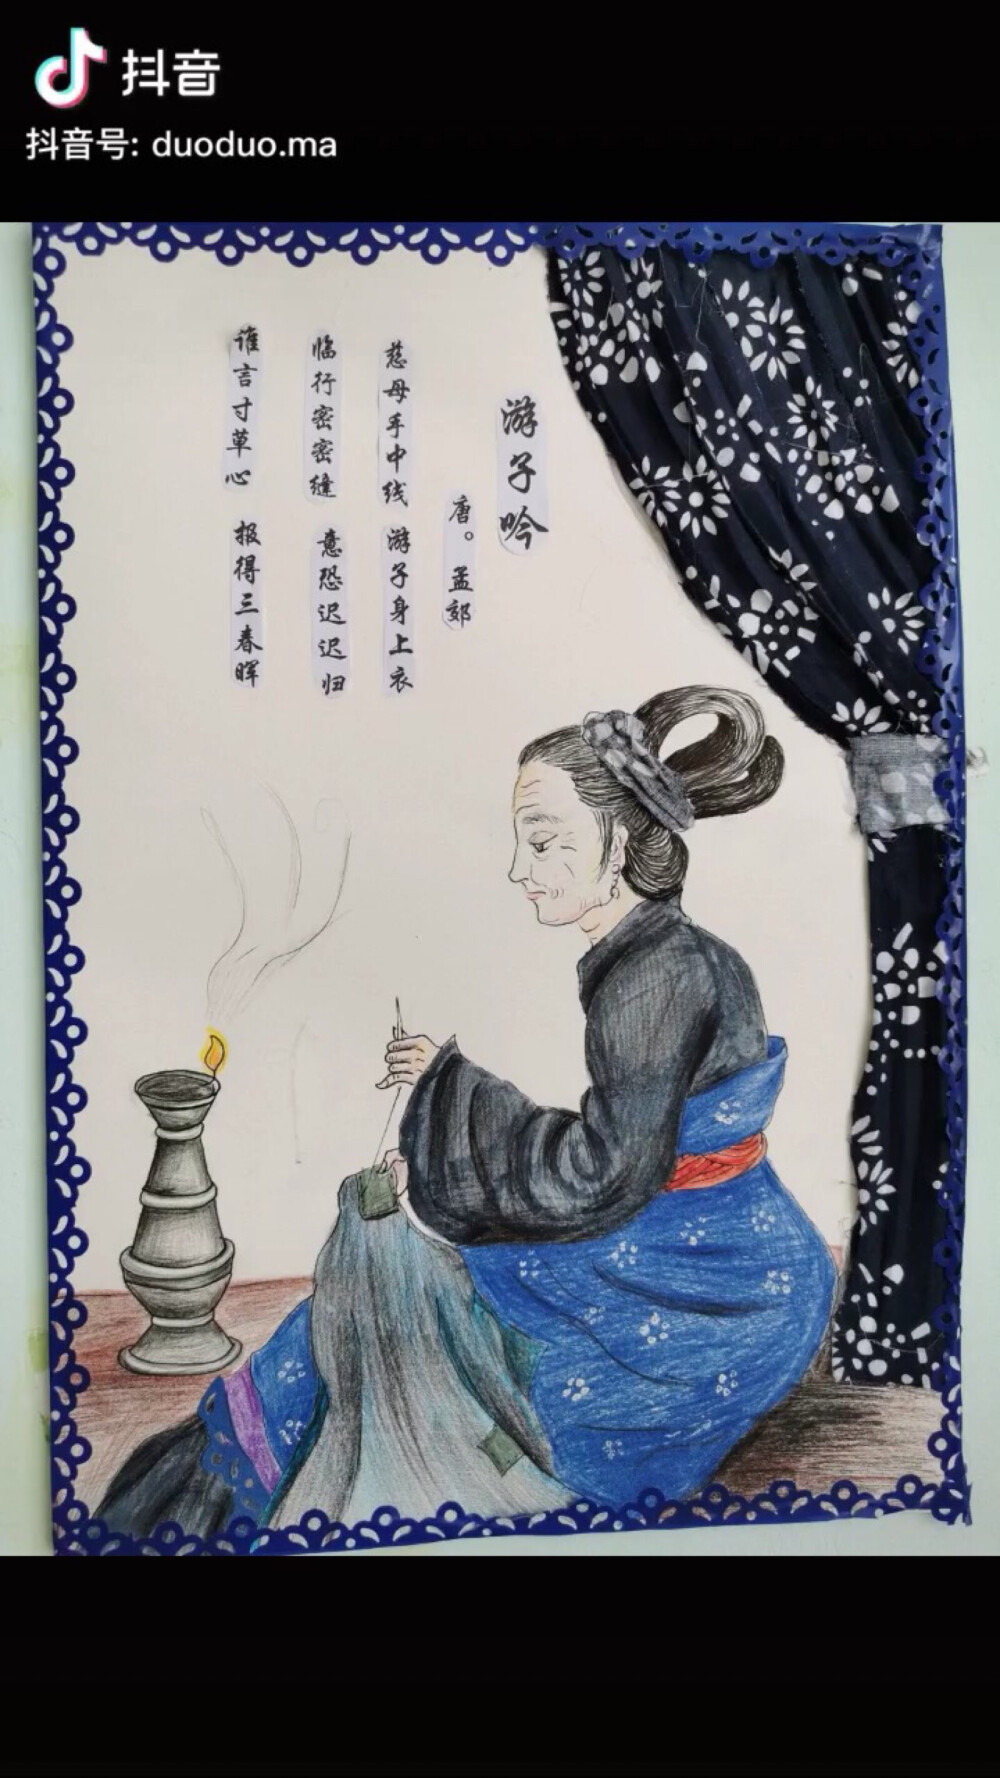 抖音
抖音号: duoduo.ma
游子吟
唐。孟郊
慈母手中线 游子身上衣
临行密密缝 意恐迟迟归
谁言寸草心 报得三春晖